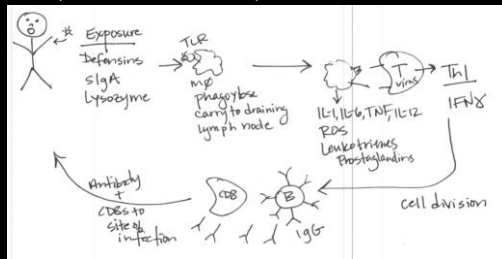 Exposure
Defensins
sIgA
Lysozyme
TLR
mø
phagoylose
carry to draining
lymph node
T
virus
Th1
IFNγ
IL-1, IL-6, TNF, IL-12
ROS
Leukotrienes
Prostaglandins
cell division
B
IgG
CD8
Antibody
+
CD8s to
site of
infection